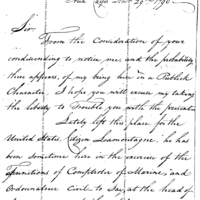 29th 1790
Sir
From the Consideration of your
condescending to notice me, and the probability
there appears, of my being in a Publick
Character, I hope you will excuse my taking
the liberty to Trouble you with the
Lately left this place for the
United States, Citizen he has
been sometime here in the exercise of the
Functions of Comptroler of Marine, and
Ordonnateur Civil to say, at the head of